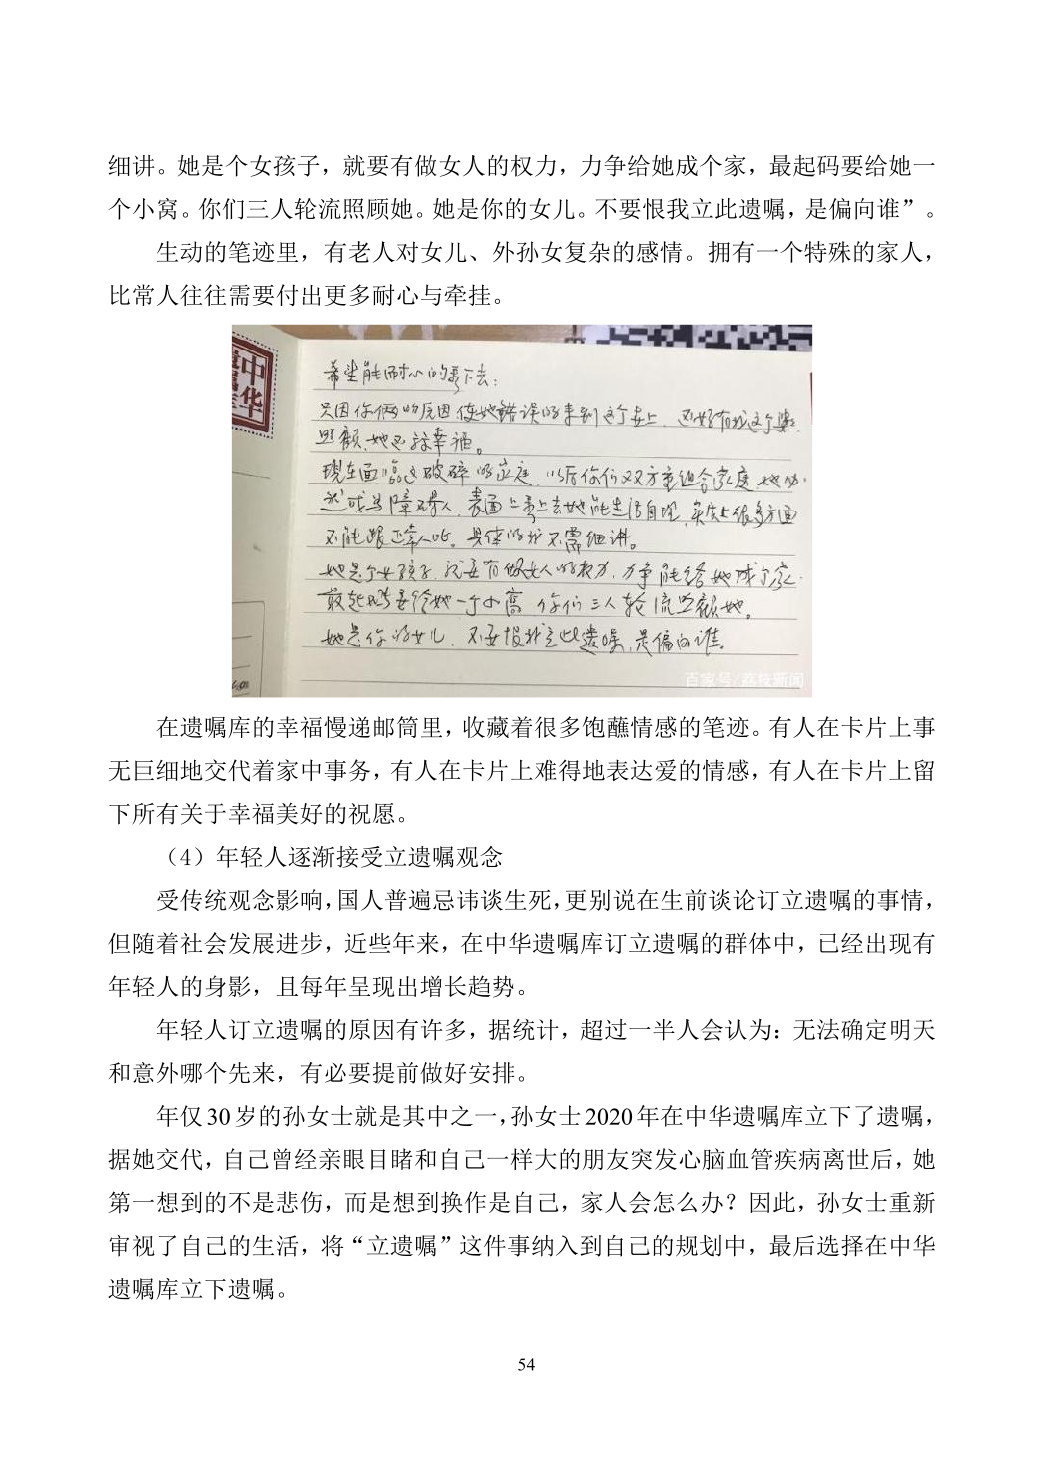 细讲。她是个女孩子，就要有做女人的权力，力争给她成个家，最起码要给她一
个小窝。你们三人轮流照顾她。她是你的女儿。不要恨我立此遗嘱，是偏向谁”。
生动的笔迹里，有老人对女儿、外孙女复杂的感情。拥有一个特殊的家人，
比常人往往需要付出更多耐心与牵挂。
中华
希望能耐心的看下去：
只因你俩的原因使她错误的来到这个世上，还好有我这个
照顾，她还算幸福。
现在面临这破碎的家庭，以后你们双方重组合家庭，她
成为障碍人，表面上看上去她能生活自理，实际上很多方面
不能跟正常人比。具体的我不需细讲。
她是个女孩子，就要有做女人的权力，力争能给她成个家
最起码要给她一个小窝 你们三人轮流照顾她。
她是你的女儿，不要恨我立此遗嘱，是偏向谁。
百家号/荔枝新闻
在遗嘱库的幸福慢递邮筒里，收藏着很多饱蘸情感的笔迹。有人在卡片上事
无巨细地交代着家中事务，有人在卡片上难得地表达爱的情感，有人在卡片上留
下所有关于幸福美好的祝愿。
（4）年轻人逐渐接受立遗嘱观念
受传统观念影响，国人普遍忌讳谈生死，更别说在生前谈论订立遗嘱的事情，
但随着社会发展进步，近些年来，在中华遗嘱库订立遗嘱的群体中，已经出现有
年轻人的身影，且每年呈现出增长趋势。
年轻人订立遗嘱的原因有许多，据统计，超过一半人会认为：无法确定明天
和意外哪个先来，有必要提前做好安排。
年仅 30 岁的孙女士就是其中之一，孙女士 2020 年在中华遗嘱库立下了遗嘱，
据她交代，自己曾经亲眼目睹和自己一样大的朋友突发心脑血管疾病离世后，她
第一想到的不是悲伤，而是想到换作是自己，家人会怎么办？因此，孙女士重新
审视了自己的生活，将“立遗嘱”这件事纳入到自己的规划中，最后选择在中华
遗嘱库立下遗嘱。
54